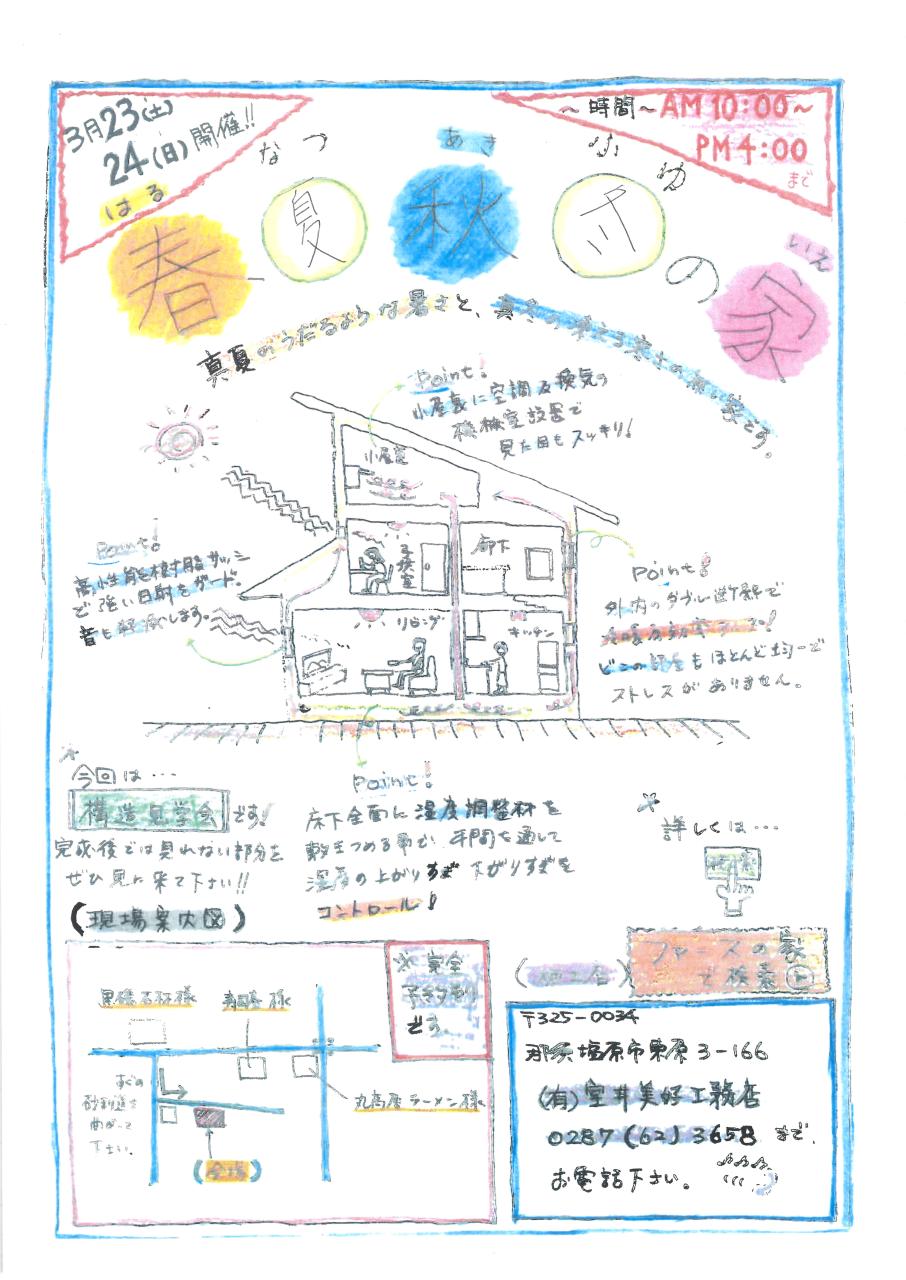 3月23(土)
24(日)開催!!
～時間～AM10:00～
PM4:00
まで
はる
なつ
あき
ふゆ
いえ
春夏秋冬の家
真夏のうだるような暑さと、真冬の凍える寒さの無い家です。
Point!
小屋裏に空調及換気の
機械室設置で
見た目もスッキリ!
小屋裏
子供室
廊下
リビング
キッチン
Point!
高性能樹脂サッシ
で強い日射をガード。
音も軽減します。
Point!
外内のダブル断熱で
どこの部屋もほとんど
ストレスがありません。
今回は…
構造見学会です!
完成後では見れない部分を
ぜひ見に来て下さい!!
(現場案内図)
Point!
床下全面に湿度調整材を
敷きつめる事で、年間を通して
湿度の上がりすぎ下がりすぎを
コントロール!
詳しくは…
ファースの家
で検索
(施工店)
※完全
予約制
です。
黒磯石材様
丸高屋ラーメン様
すぐの
砂利道を
曲がって
下さい。
(会場)
〒325-0034
那須塩原市東原3-166
(有)室井美好工務店
0287(62)3658まで、
お電話下さい。